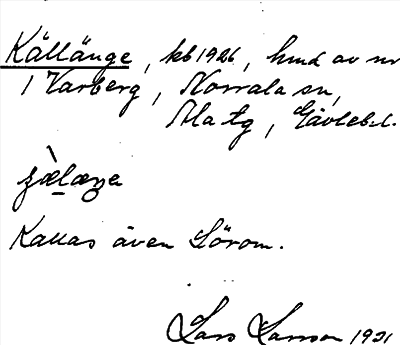 Källänge, kb 1926, hmd av nr
1 Karberg, Norrala sn,
Ala tg, Gävlebl.
Kallas även Sörom.
Lars Larsson 1931